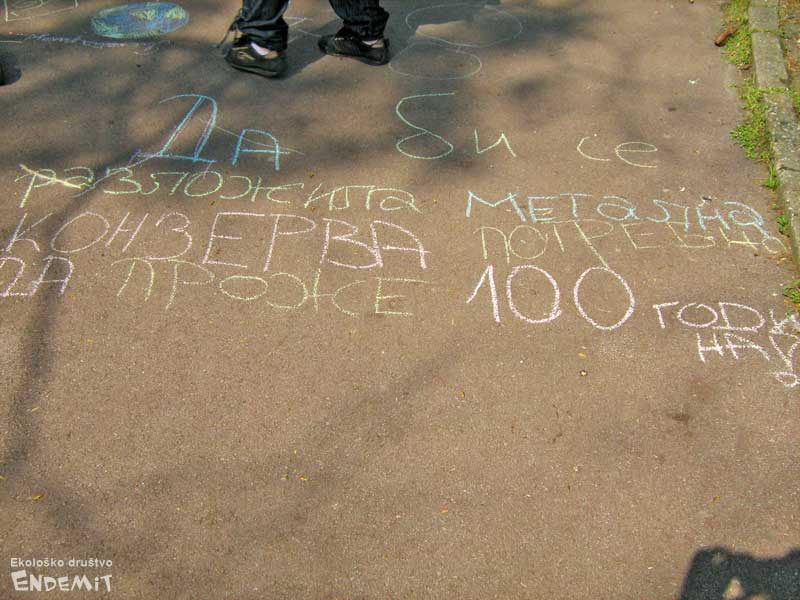 Да би се
разложила метална
КОНЗЕРВА ПОТРЕБНО
ДА ПРОЂЕ 100 ГОДИ
НА!
Ekološko društvo
ENDEMiT